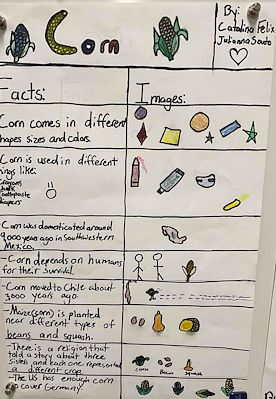 By:
Catalina Felix
Julianna Souto
Corn
Facts:
Images:
Corn comes in different
shapes sizes and colors.
Corn is used in different
things like:
Crayons
chalk
toothpaste
diapers
-Corn was domesticated around
9,000 years ago in Southwestern
Mexico.
-Corn depends on humans
for their survival.
-Corn moved to Chile about
3000 years ago.
-Maize(corn) is planted
near different types of
beans and squash.
-There is a religion that
told a story about three
sisters and each one represented
a different crop
corn
Beans
squash
-The US has enough corn
to cover Germany.